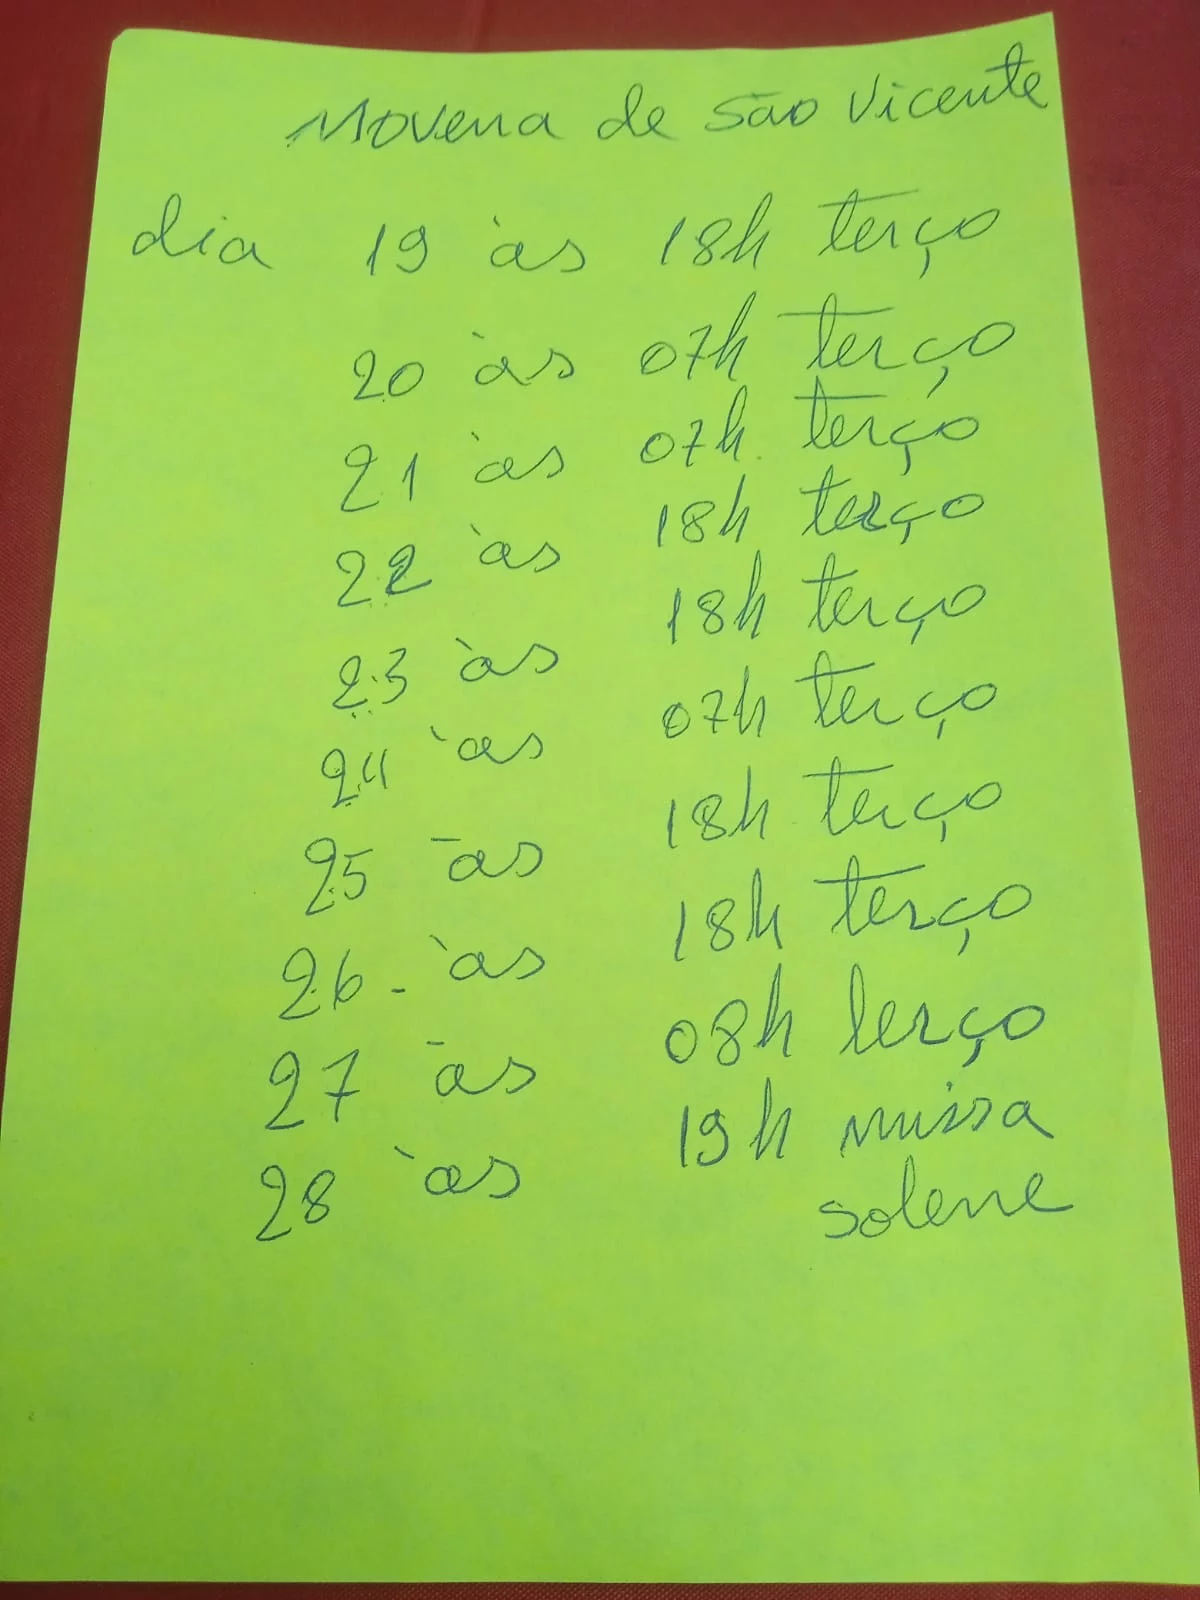 Novena de São Vicente
dia 19 às 18h terço
20 às 07h terço
21 às 07h terço
22 às 18h terço
23 às 18h terço
24 às 07h terço
25 às 18h terço
26 - às 18h terço
27 às 08h terço
28 às 19h missa
solene